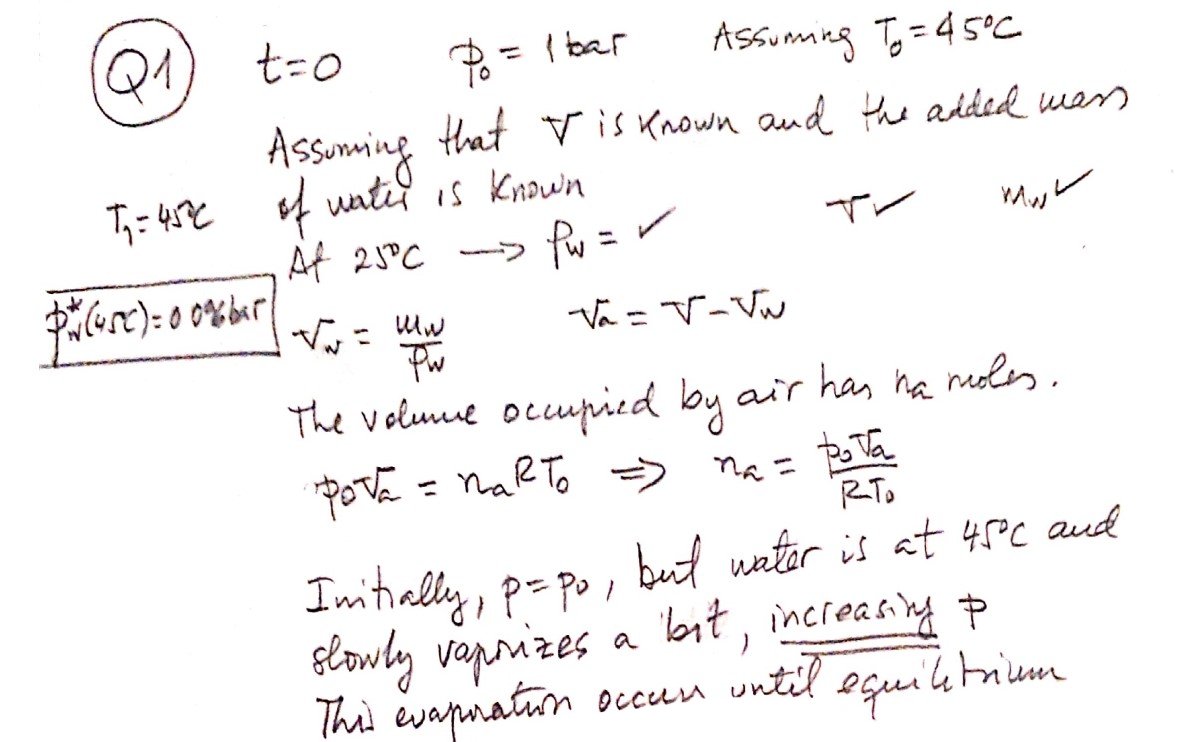 Q1 t=0 p₀ = 1 bar Assuming T₀ = 45°C
Assuming that V is known and the added mass
of water is known
T₁ = 45°C V✓ m_w✓
At 25°C → ρ_w = ✓
p*_w(45°C) = 0.096 bar
V_w = m_w/ρ_w V_a = V - V_w
The volume occupied by air has n_a moles.
p₀V_a = n_aRT₀ ⇒ n_a = p₀V_a/RT₀
Initially, p = p₀, but water is at 45°C and
slowly vaporizes a bit, increasing p
This evaporation occurs until equilibrium